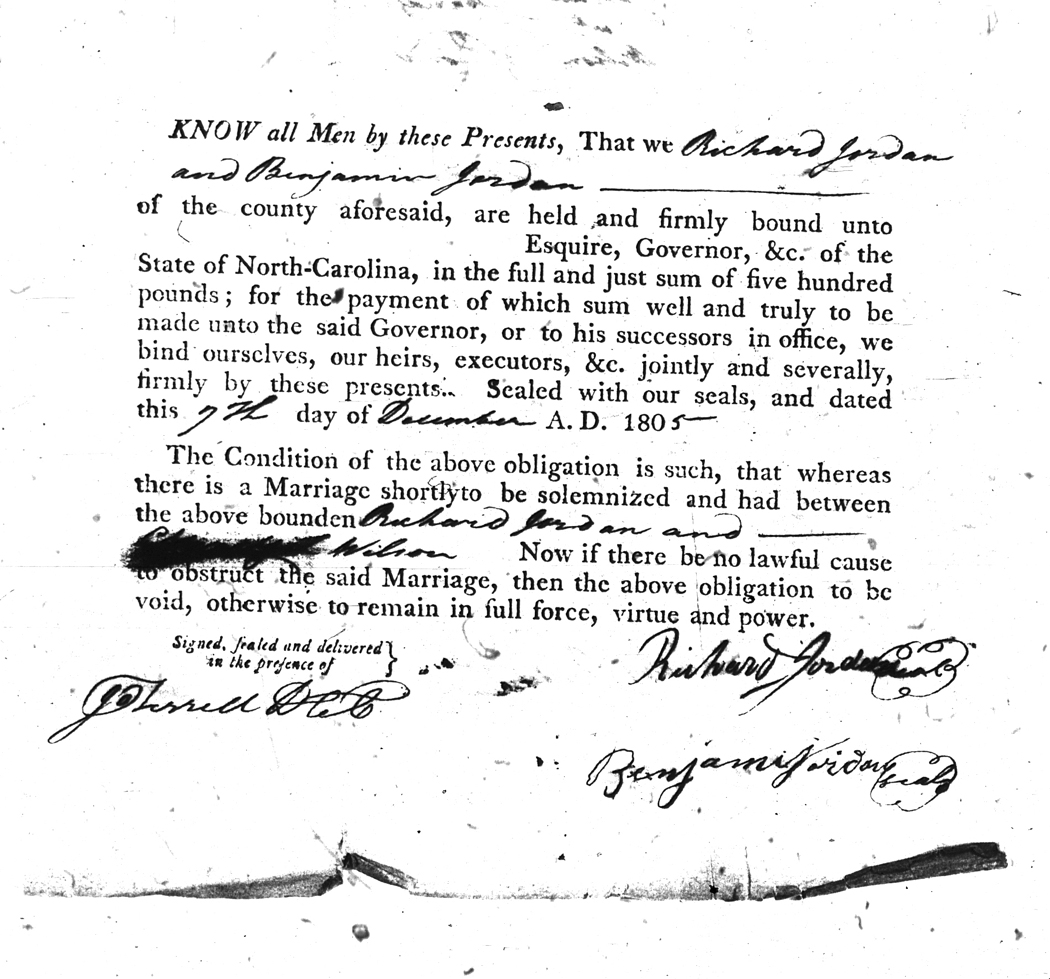 KNOW all Men by these Presents, That we Richard Jordan
and Benjamin Jordan
of the county aforesaid, are held and firmly bound unto
Esquire, Governor, &c. of the
State of North-Carolina, in the full and just sum of five hundred
pounds; for the payment of which sum well and truly to be
made unto the said Governor, or to his successors in office, we
bind ourselves, our heirs, executors, &c. jointly and severally,
firmly by these presents. Sealed with our seals, and dated
this 7th day of December A. D. 1805
The Condition of the above obligation is such, that whereas
there is a Marriage shortly to be solemnized and had between
the above bounden Richard Jordan and
Wilson Now if there be no lawful cause
to obstruct the said Marriage, then the above obligation to be
void, otherwise to remain in full force, virtue and power.
Signed, sealed and delivered
in the presence of
Richard Jordan seal
Terrell D C C
Benjamin Jordan seal